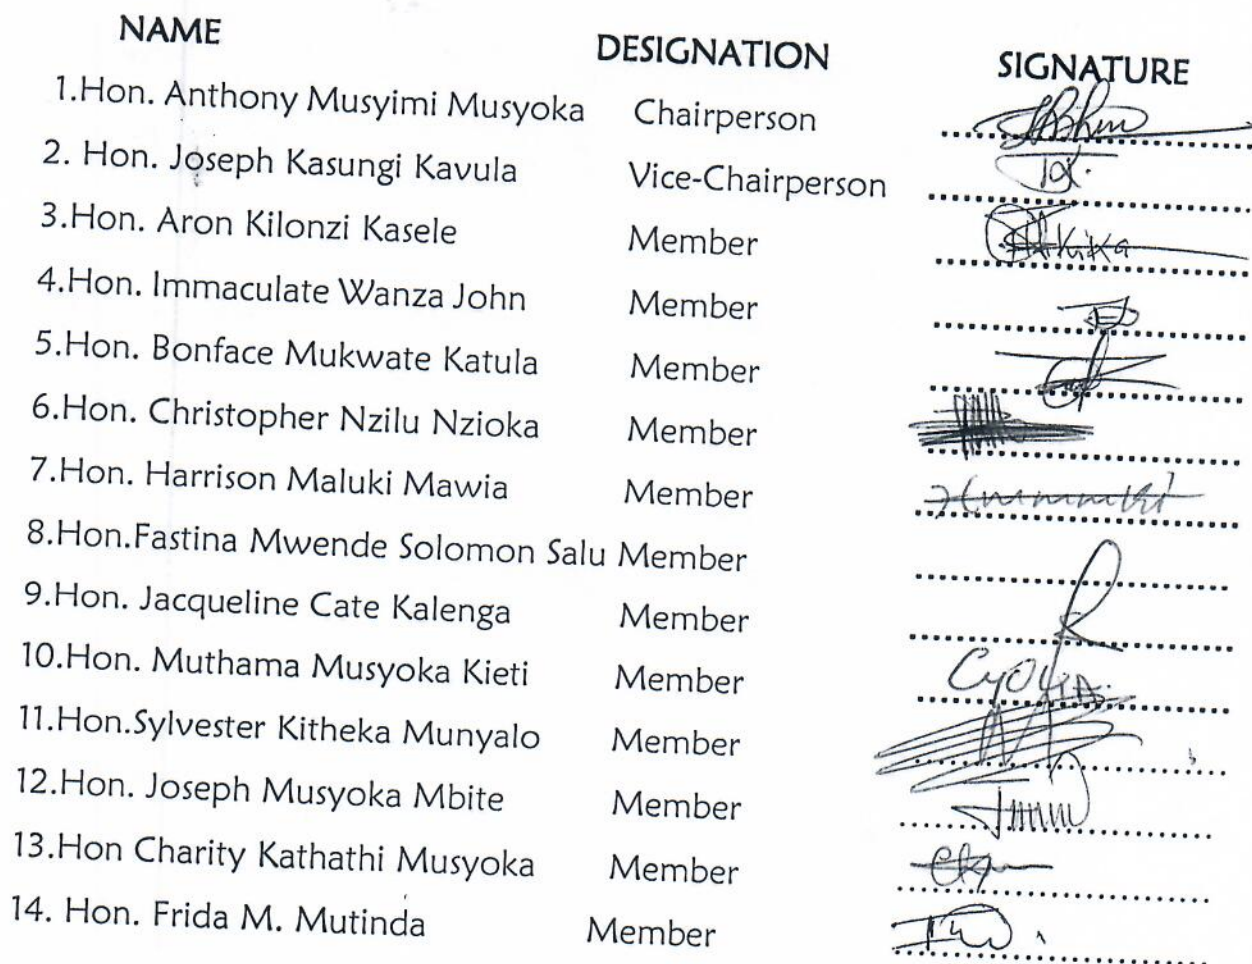 NAME DESIGNATION SIGNATURE
1.Hon. Anthony Musyimi Musyoka Chairperson
2. Hon. Joseph Kasungi Kavula Vice-Chairperson
3.Hon. Aron Kilonzi Kasele Member
4.Hon. Immaculate Wanza John Member
5.Hon. Bonface Mukwate Katula Member
6.Hon. Christopher Nzilu Nzioka Member
7.Hon. Harrison Maluki Mawia Member
8.Hon.Fastina Mwende Solomon Salu Member
9.Hon. Jacqueline Cate Kalenga Member
10.Hon. Muthama Musyoka Kieti Member
11.Hon.Sylvester Kitheka Munyalo Member
12.Hon. Joseph Musyoka Mbite Member
13.Hon Charity Kathathi Musyoka Member
14. Hon. Frida M. Mutinda Member